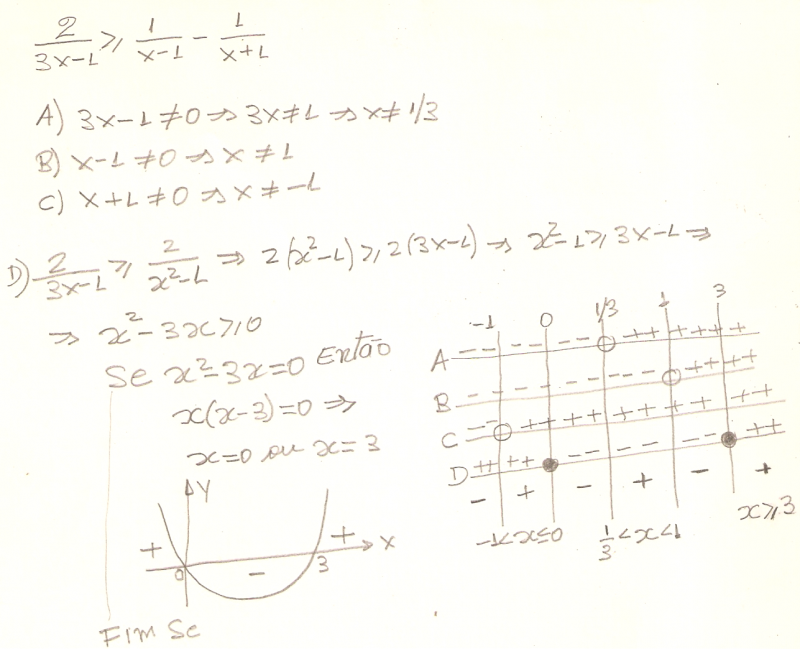 2/(3x-1) ⩾ 1/(x-1) - 1/(x+1)
A) 3x-1≠0 ⇒ 3x≠1 ⇒ x≠1/3
B) x-1≠0 ⇒ x≠1
C) x+1≠0 ⇒ x≠-1
D) 2/(3x-1) ⩾ 2/(x²-1) ⇒ 2(x²-1)⩾2(3x-1) ⇒ x²-1⩾3x-1 ⇒
⇒ x²-3x⩾0
Se x²-3x=0 Então
x(x-3)=0 ⇒
x=0 ou x=3
Y
+ + X
0 - 3
Fim Se
-1 0 1/3 1 3
A - - - - - - - - - ++ ++++ +
B - - - - - - - - - - - - ++++
C - - ++++ +++ + + + + ++
D ++ ++ - - - - - - - - - ++
- + - + - +
-1<x≤0 1/3<x<1 x⩾3